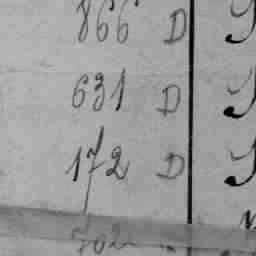 866 D
631 D
172 D
702